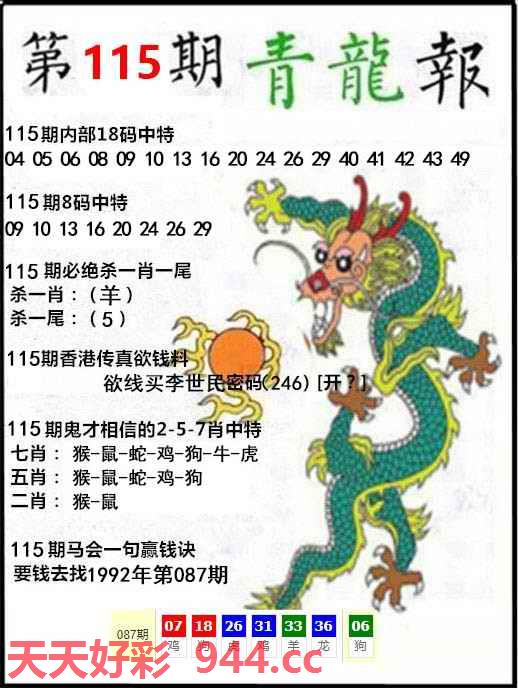 第115期 青龍報
115期内部18码中特
04 05 06 08 09 10 13 16 20 24 26 29 40 41 42 43 49
115期8码中特
09 10 13 16 20 24 26 29
115 期必绝杀一肖一尾
杀一肖：（羊）
杀一尾：（5）
115期香港传真欲钱料
欲线买李世民密码(246) [开？]
115期鬼才相信的2-5-7肖中特
七肖： 猴-鼠-蛇-鸡-狗-牛-虎
五肖： 猴-鼠-蛇-鸡-狗
二肖： 猴-鼠
115期马会一句赢钱诀
要钱去找1992年第087期
087期 07 18 26 31 33 36 06
鸡 狗 虎 鸡 羊 龙 狗
天天好彩 944.cc